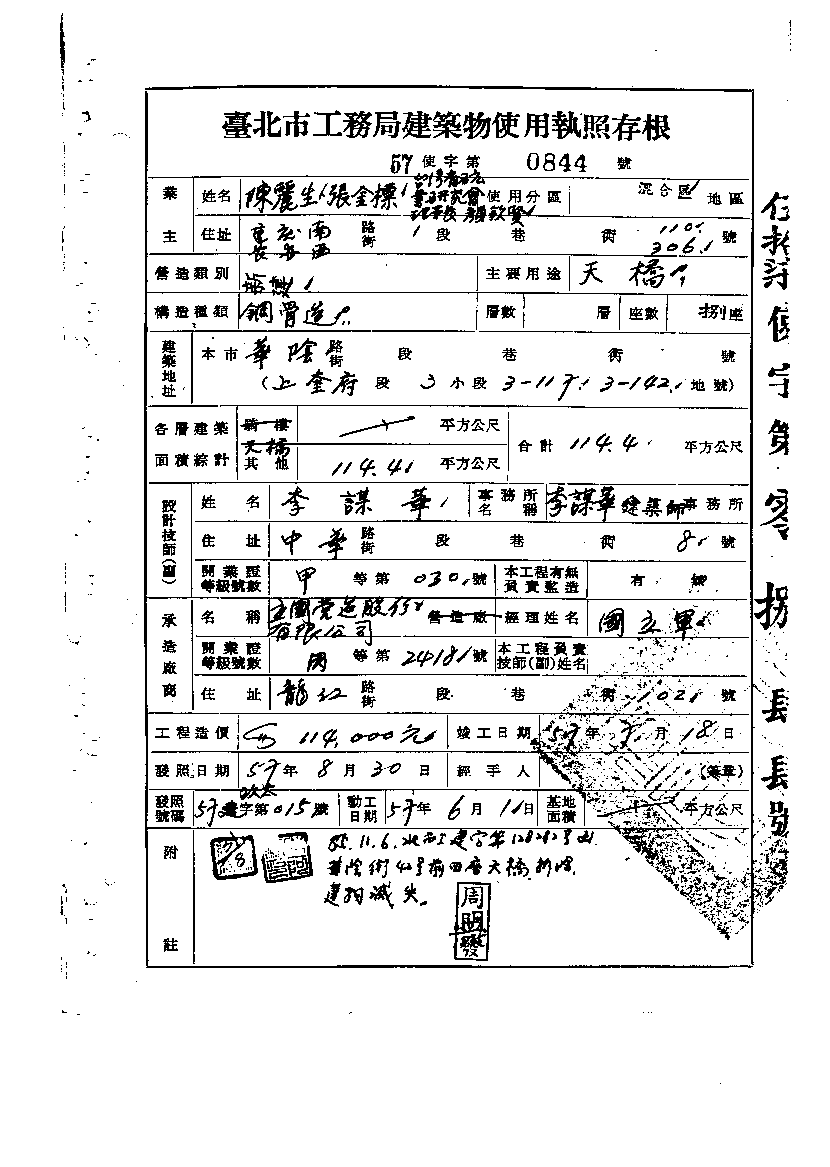 臺北市工務局建築物使用執照存根
57 使字第 0844 號
業主 姓名 陳麗生 張金標 使用分區 混合區 地區
住址 南 路街 1 段 巷 衖 110. 306. 號
營造類別 主要用途 天橋
構造種類 鋼骨造 層數 層 座數 捌座
建築地址 本市 華陰 路街 段 巷 衖 號
(上奎府 段 3 小段 3-117. 3-142. 地號)
各層建築面積綜計 騎樓 平方公尺 合計 114.4 平方公尺
天橋 其他 114.41 平方公尺
設計技師(副) 姓名 李謀華 事務所名稱 李謀華建築師事務所
住址 中華 路街 段 巷 衖 8. 號
開業證等級號數 甲 等第 030. 號 本工程有無負責監造 有
承造廠商 名稱 立國營造股份有限公司 營造廠 經理姓名 國立軍
開業證等級號數 丙 等第 2418 號 本工程負責技師(副)姓名
住址 龍江 路街 段 巷 衖 102 號
工程造價 114,000元 竣工日期 57年 月 18日
發照日期 57年8月30日 經手人 (簽章)
發照號碼 57 建字第 015 號 動工日期 57年6月11日 基地面積 平方公尺
附註 85.11.6. 北市工建字第 號
華陰街42號前 天橋拆除
建物滅失。
周明發
伍拾柒使字第零捌 號